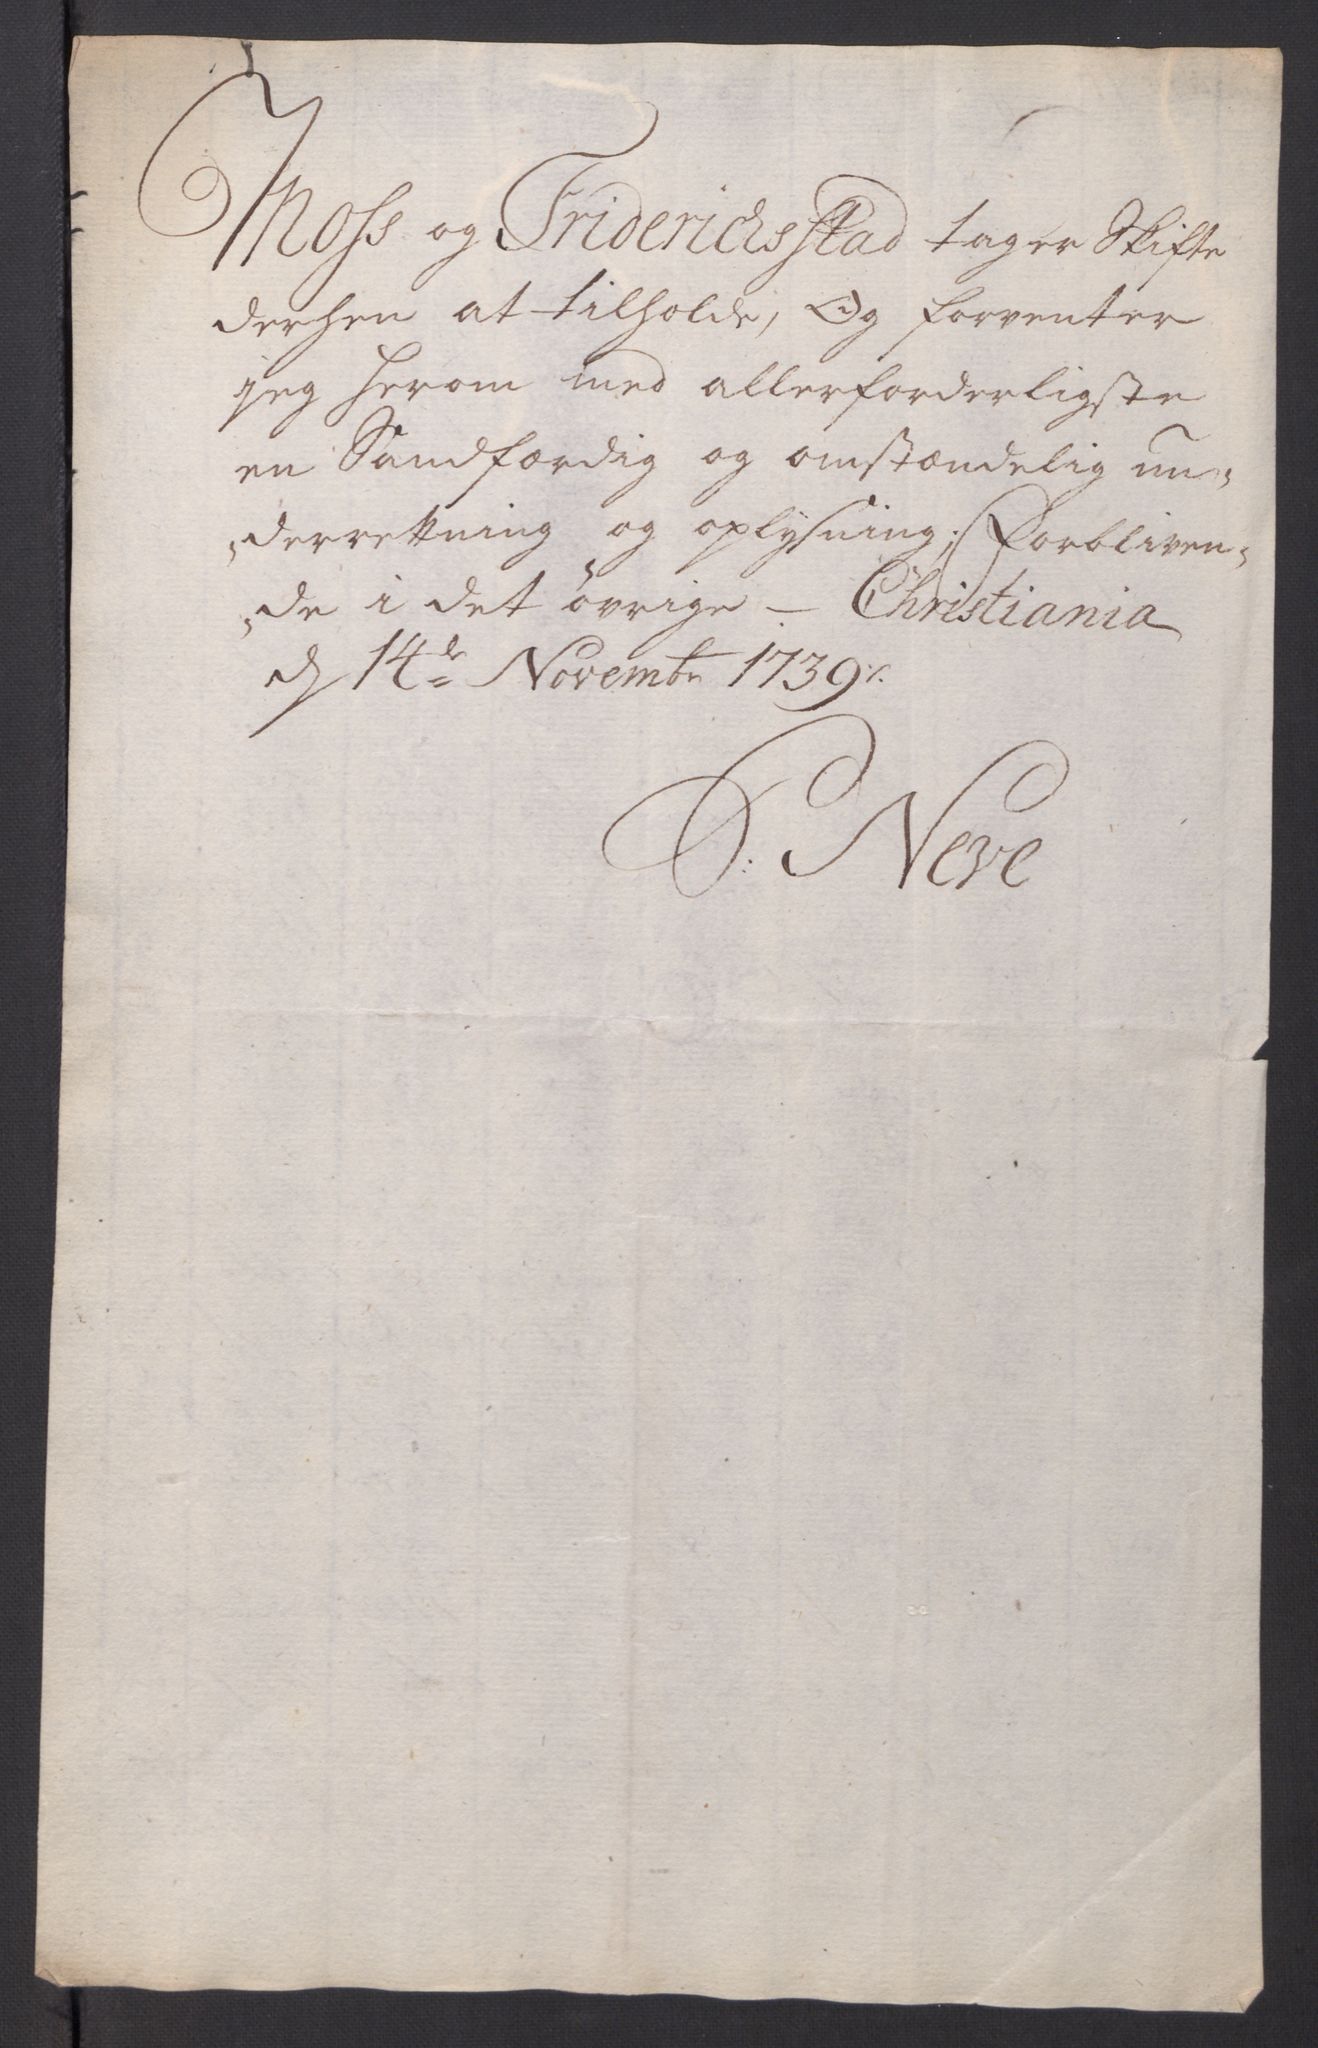 Moss og Friderichsstad tager Skifte
derhen at tilholde, Og forventer
jeg herom med allerforderligste
en Sandfærdig og omstændelig un„
„derretning og oplysning; Forbliven„
„de i det øvrige — Christiania
d 14de Novembr 1739 ⁒
S: Neve